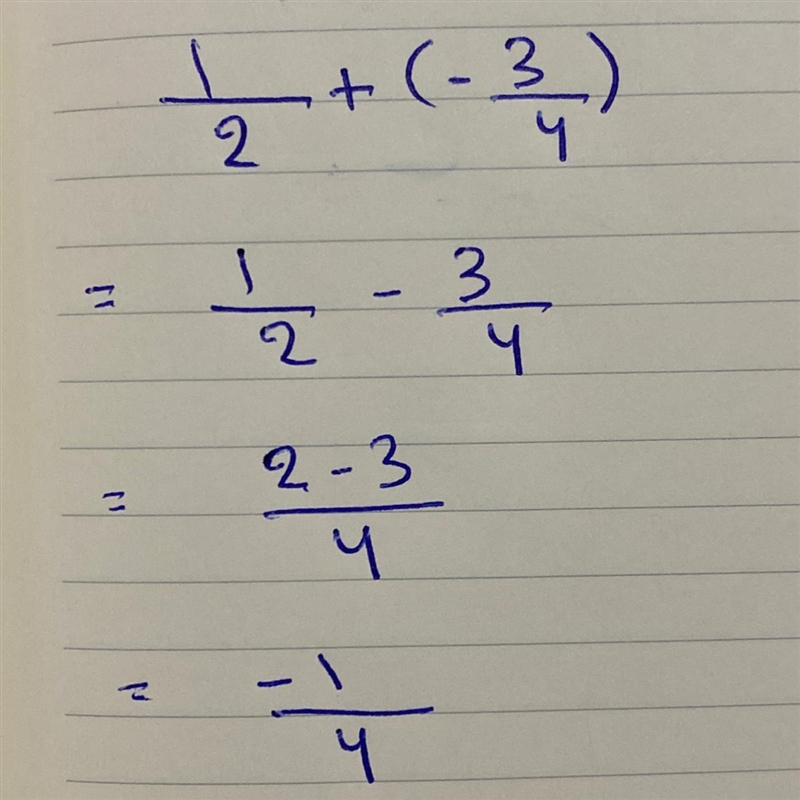 1/2 + (- 3/4)
= 1/2 - 3/4
= 2 - 3/4
= -1/4